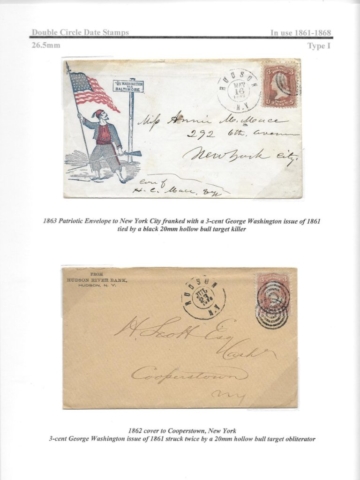 Double Circle Date Stamps
In use 1861-1868
26.5mm
Type I
BALTIMORE
HUDSON
N.Y.
Miss Annie M.
292 6th Avenue
New York City.
Care of
H. C.
1863 Patriotic Envelope to New York City franked with a 3-cent George Washington issue of 1861
tied by a black 20mm hollow bull target killer
FROM
HUDSON RIVER BANK,
HUDSON, N. Y.
HUDSON
N.Y.
H. Scott Esq
Cash
Cooperstown
NY
1862 cover to Cooperstown, New York
3-cent George Washington issue of 1861 struck twice by a 20mm hollow bull target obliterator